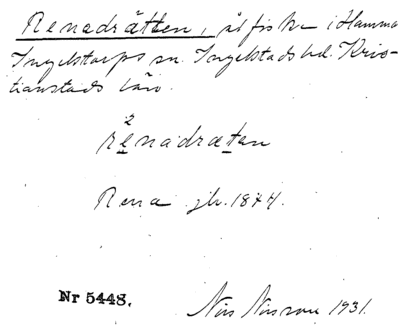 Renadrätten, ålfiske i Hamma
Ingelstorps sn. Ingelstads hd. Kris-
tianstads län.
2
renadræten
Rena jb. 1844.
Nr 5448. Nils Nilsson 1931.